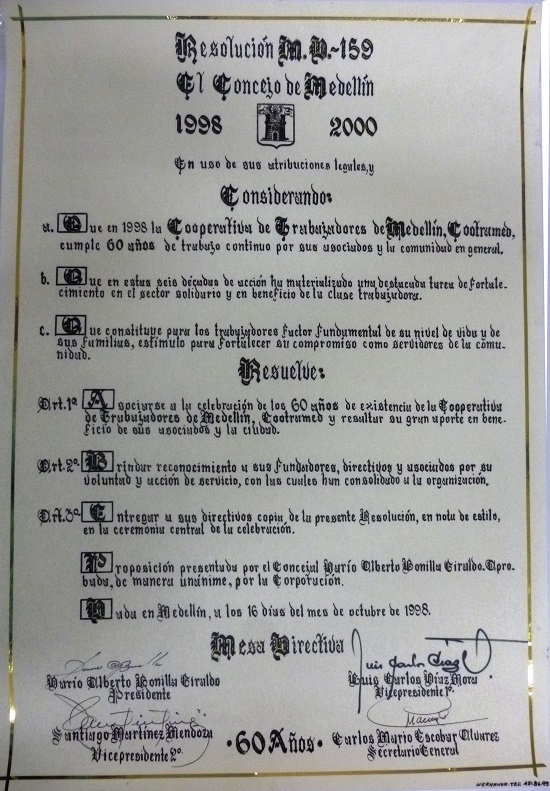 Resolución M.D.-159
El Concejo de Medellín
1998 2000
En uso de sus atribuciones legales, y
Considerando:
a. Que en 1998 la Cooperativa de Trabajadores de Medellín, Cootramed,
cumple 60 años de trabajo continuo por sus asociados y la comunidad en general.
b. Que en estas seis décadas de acción ha materializado una destacada tarea de fortale-
cimiento en el sector solidario y en beneficio de la clase trabajadora.
c. Que constituye para los trabajadores factor fundamental de su nivel de vida y de
sus familias, estímulo para fortalecer su compromiso como servidores de la comu-
nidad.
Resuelve:
Art. 1º Asociarse a la celebración de los 60 años de existencia de la Cooperativa
de Trabajadores de Medellín, Cootramed y resaltar su gran aporte en bene-
ficio de sus asociados y la ciudad.
Art. 2º Brindar reconocimiento a sus fundadores, directivos y asociados por su
voluntad y acción de servicio, con las cuales han consolidado a la organización.
Art. 3º Entregar a sus directivos copia de la presente Resolución, en nota de estilo,
en la ceremonia central de la celebración.
Proposición presentada por el Concejal Darío Alberto Bonilla Giraldo. Apro-
bada, de manera unánime, por la Corporación.
Dada en Medellín, a los 16 días del mes de octubre de 1998.
Mesa Directiva
Luis Carlos Díaz
Darío Alberto Bonilla Giraldo
Presidente
Luis Carlos Díaz Mora
Vicepresidente 1º
Santiago Martínez Mendoza
Vicepresidente 2º
·60 Años·
Carlos Mario Escobar Alvarez
Secretario General
HERNANDO-TEL.